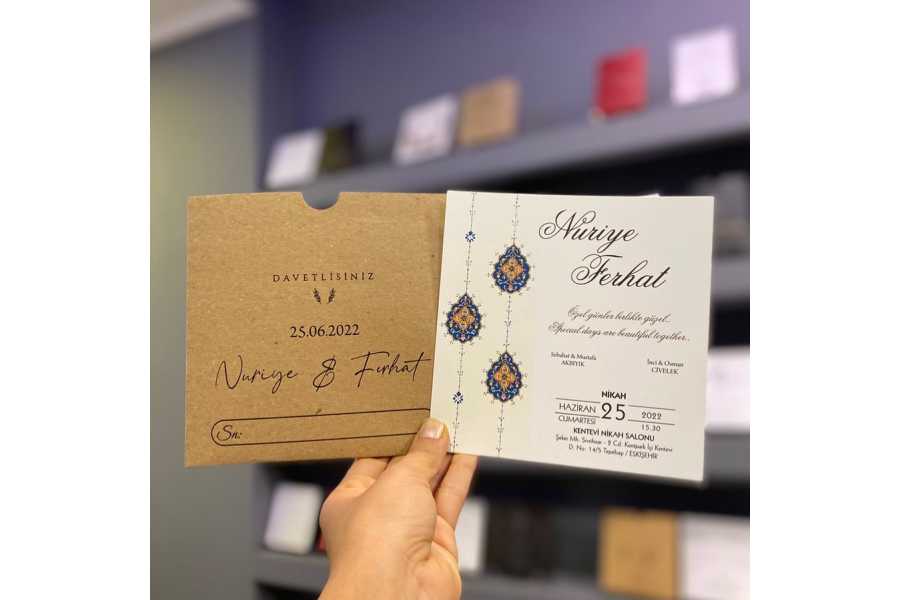 DAVETLİSİNİZ
25.06.2022
Nuriye & Ferhat
Sn:
Nuriye
Ferhat
Özel günler birlikte güzel...
Special days are beautiful together..
Sebahat & Mustafa
AKBIYIK
İnci & Osman
CİVELEK
NİKAH
HAZİRAN
CUMARTESİ
25
2022
15.30
KENTEVİ NİKAH SALONU
Şeker Mh. Sivrihisar - 2 Cd. Kentpark İçi Kentevi
D. No: 14/5 Tepebaşı / ESKİŞEHİR